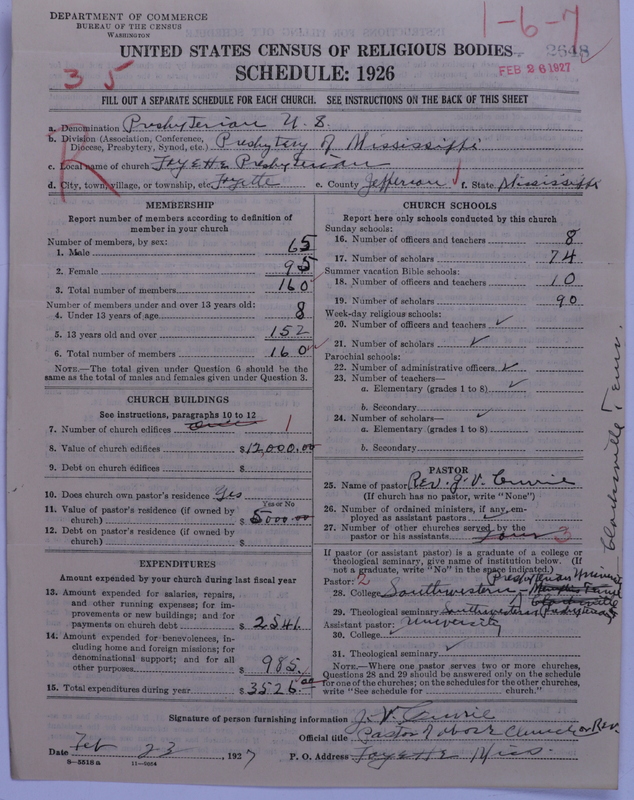 DEPARTMENT OF COMMERCE
BUREAU OF THE CENSUS
WASHINGTON
1-6-7
UNITED STATES CENSUS OF RELIGIOUS BODIES
2648
SCHEDULE: 1926
FEB 26 1927
35
FILL OUT A SEPARATE SCHEDULE FOR EACH CHURCH. SEE INSTRUCTIONS ON THE BACK OF THIS SHEET
R
a. Denomination Presbyterian U.S.
b. Division (Association, Conference, Diocese, Presbytery, Synod, etc.) Presbytery of Mississippi
c. Local name of church Fayette Presbyterian
d. City, town, village, or township, etc. Fayette e. County Jefferson f. State Mississippi
MEMBERSHIP
Report number of members according to definition of
member in your church
Number of members, by sex:
1. Male 65
2. Female 95
3. Total number of members 160
Number of members under and over 13 years old:
4. Under 13 years of age 8
5. 13 years old and over 152
6. Total number of members 160
NOTE.—The total given under Question 6 should be the
same as the total of males and females given under Question 3.
CHURCH BUILDINGS
See instructions, paragraphs 10 to 12
7. Number of church edifices 1
8. Value of church edifices $12,000.00
9. Debt on church edifices $
10. Does church own pastor's residence Yes
Yes or No
11. Value of pastor's residence (if owned by
church) $5000.00
12. Debt on pastor's residence (if owned by
church) $
EXPENDITURES
Amount expended by your church during last fiscal year
13. Amount expended for salaries, repairs,
and other running expenses; for im-
provements or new buildings; and for
payments on church debt $2541.
14. Amount expended for benevolences, in-
cluding home and foreign missions; for
denominational support; and for all
other purposes $985.
15. Total expenditures during year $3526.00
CHURCH SCHOOLS
Report here only schools conducted by this church
Sunday schools:
16. Number of officers and teachers 8
17. Number of scholars 74
Summer vacation Bible schools:
18. Number of officers and teachers 10
19. Number of scholars 90
Week-day religious schools:
20. Number of officers and teachers ✓
21. Number of scholars ✓
Parochial schools:
22. Number of administrative officers ✓
23. Number of teachers—
a. Elementary (grades 1 to 8) ✓
b. Secondary
24. Number of scholars— ✓
a. Elementary (grades 1 to 8)
b. Secondary
PASTOR
25. Name of pastor Rev. J. V. Currie
(If church has no pastor, write "None")
26. Number of ordained ministers, if any, em-
ployed as assistant pastors ✓
27. Number of other churches served by the
pastor or his assistants four 3
If pastor (or assistant pastor) is a graduate of a college or
theological seminary, give name of institution below. (If
not a graduate, write "No" in the space indicated.)
Pastor: 2
28. College Southwestern Presbyterian University
Clarksville Tenn.
29. Theological seminary Southwestern Presbyterian
University
Assistant pastor:
30. College ✓
31. Theological seminary ✓
NOTE.—Where one pastor serves two or more churches,
Questions 28 and 29 should be answered only on the schedule
for one of the churches; on the schedules for the other churches,
write "See schedule for church."
Signature of person furnishing information J. V. Currie
Official title Pastor of above Church or Rev.
Date Feb 23, 1927 P. O. Address Fayette Miss.
8—5518 a 11—9664